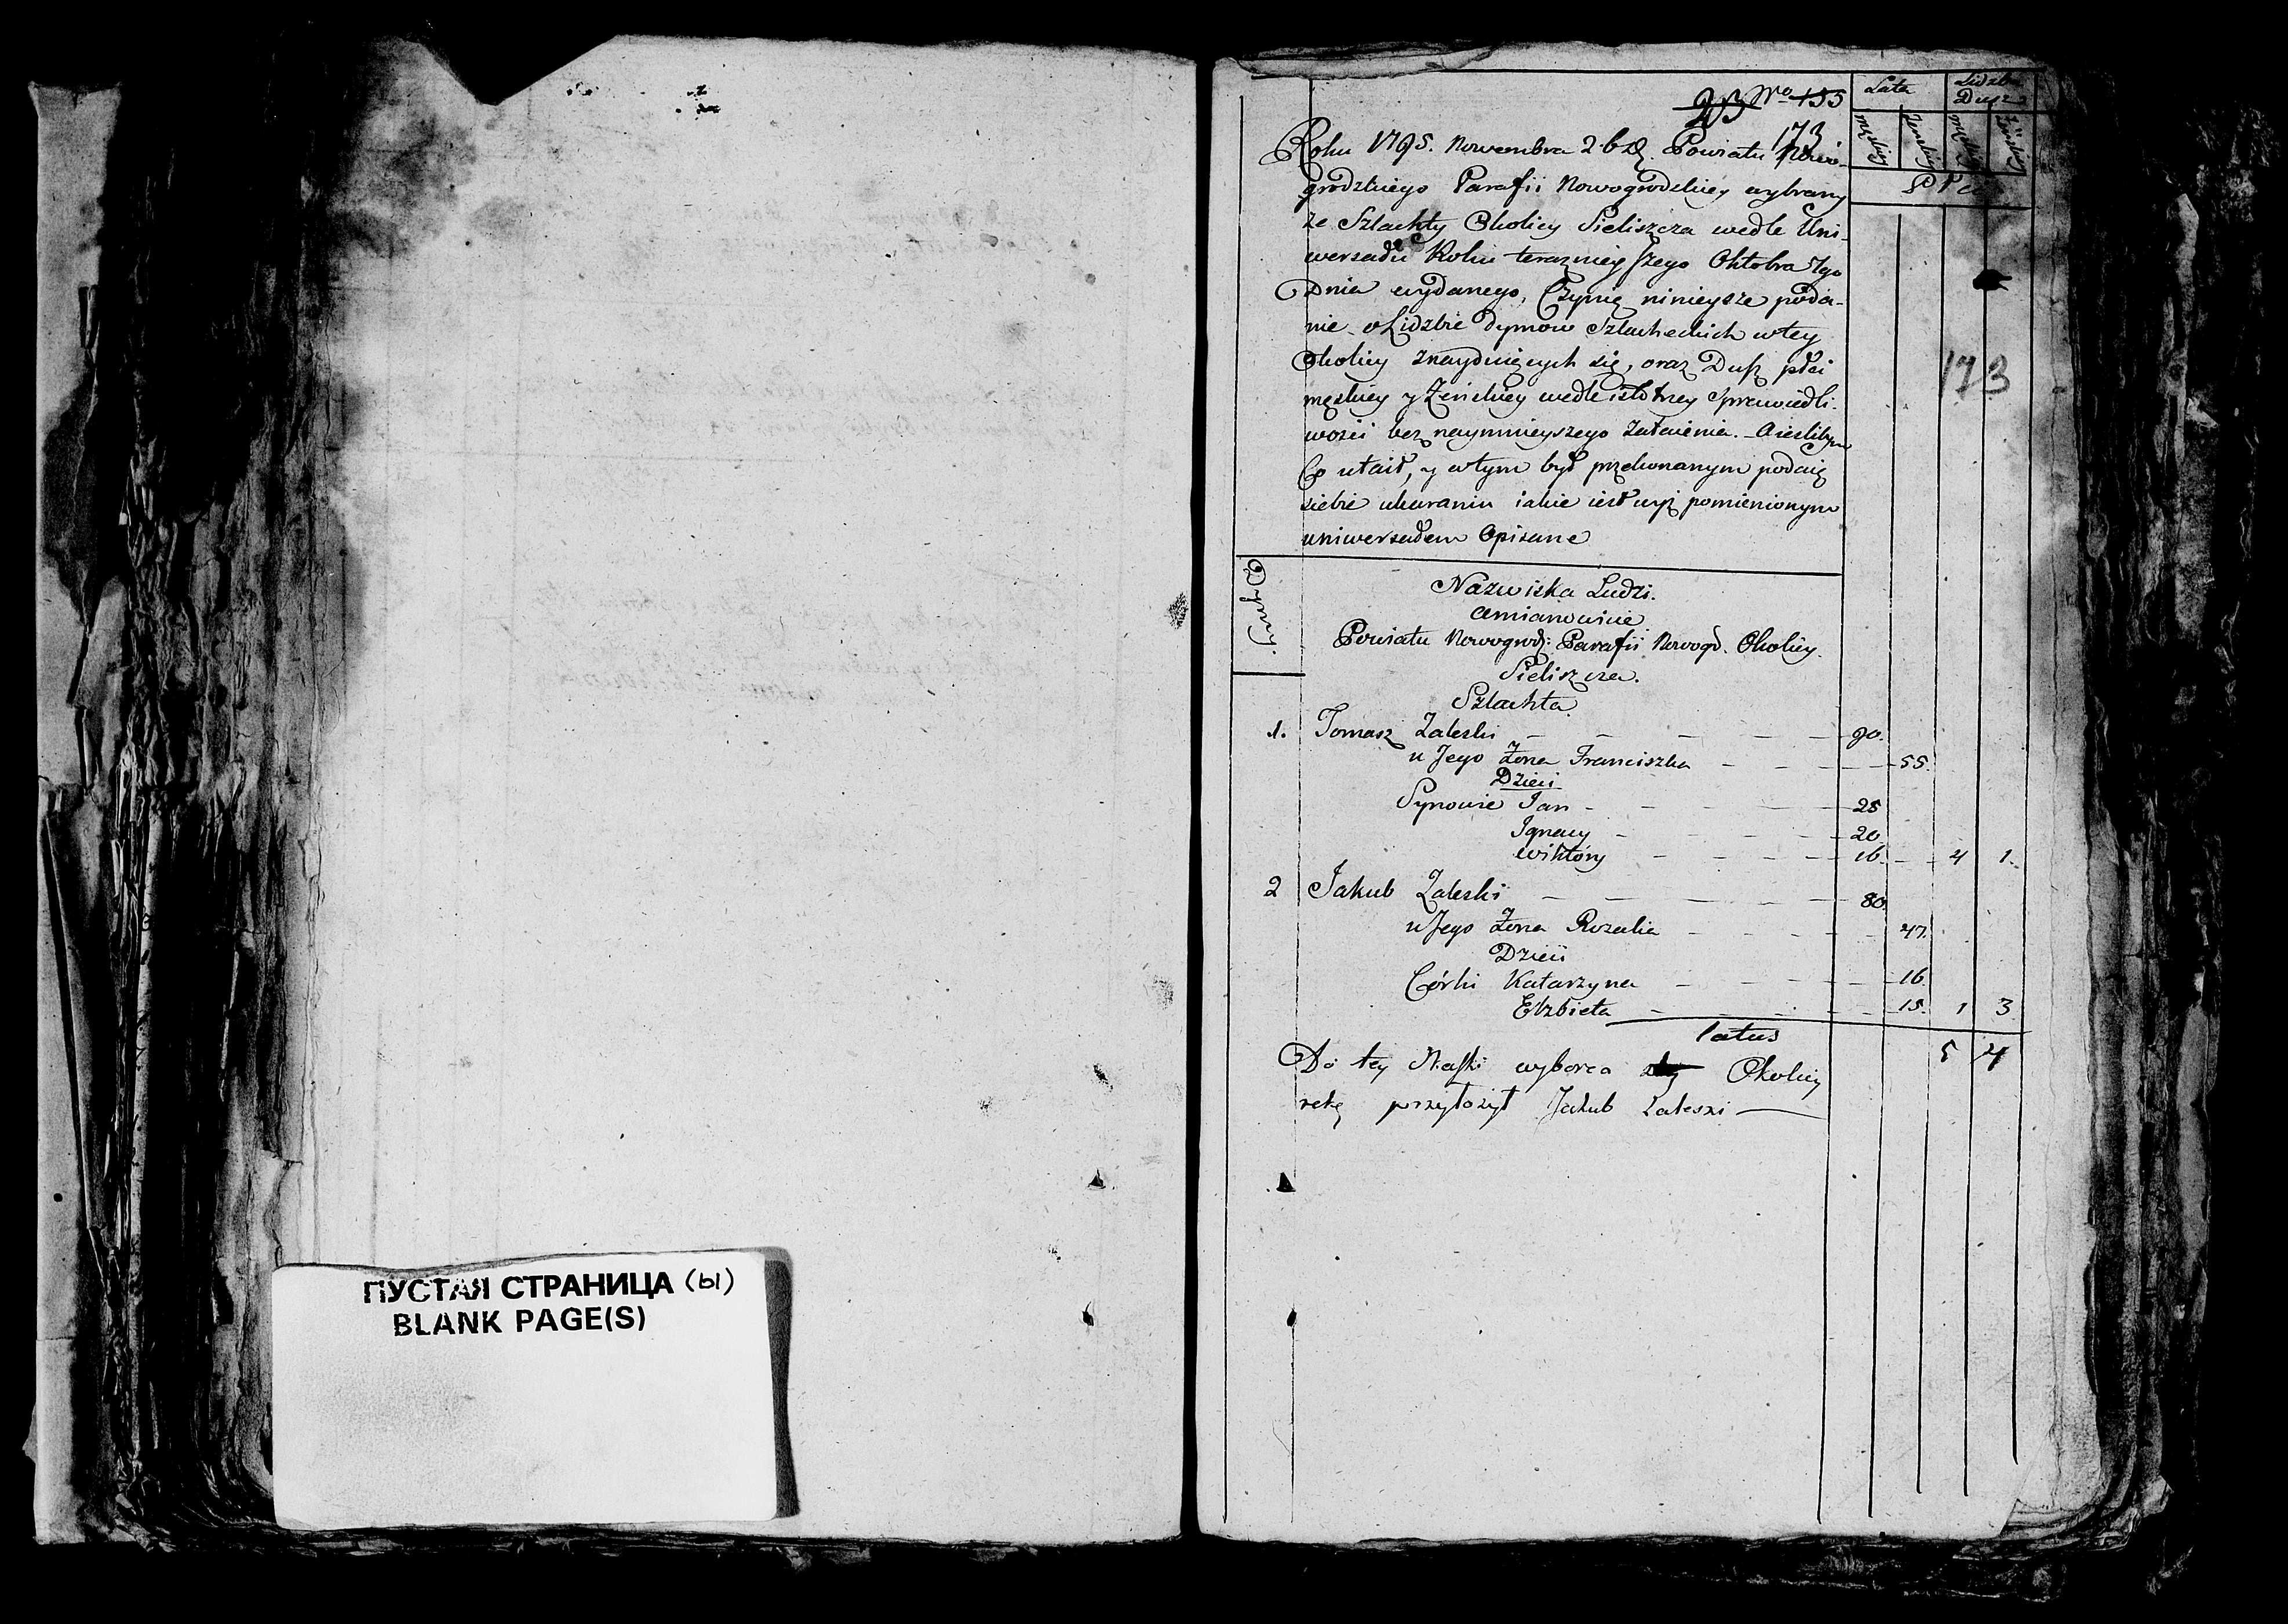 ПУСТАЯ СТРАНИЦА (ы)
BLANK PAGE(S)
203 Nro 155
173
Lata
Liczba
Dusz
męskiey
Zenskiey
męskiey
Zenskiey
Płci
Roku 1795. Nowembra 26 d. Powiatu Nowo-
grodzkiego Parafii Nowogrodzkiey wybrany
ze Szlachty Okolicy Sieliszcza wedle Uni-
wersału Roku teraznieyszego Oktobra 7go
Dnia wydanego, Czynię ninieysze poda-
nie o Lidzbie dymow Szlacheckich w tey
Okolicy znayduiących się, oraz Dusz płci
męskiey y Zenskiey wedle istotney sprawiedli-
wości bez naymnieyszego Zataienia. A ieslibym
Co utaił, y w tym był przekonanym podaię
siebie ukaraniu iakie iest wyż pomienionym
uniwersałem Opisane
173
Dymy
Nazwiska Ludzi.
amianowicie
Powiatu Nowogrod: Parafii Nowogd. Okolicy.
Sieliszcza.
Szlachta
1. Tomasz Zaleski 90.
u Jego Żona Franciszka 55.
Dzieci
Synowie Jan 25
Ignacy 20
Wiktory 16. 4 1.
2 Jakub Zaleski 80.
u Jego Żona Rozalia 47.
Dzieci
Córki Katarzyna 16
Elzbieta 15. 1 3
latus 5 4
Do tey wyborca Okolicy
rekę przyłożył Jakub Zaleski